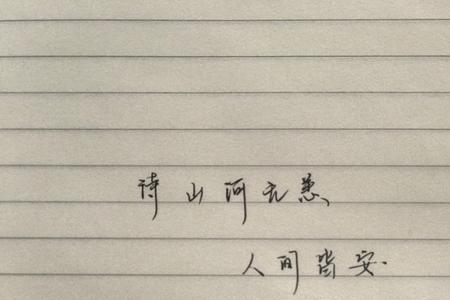 待山河无恙
人间皆安